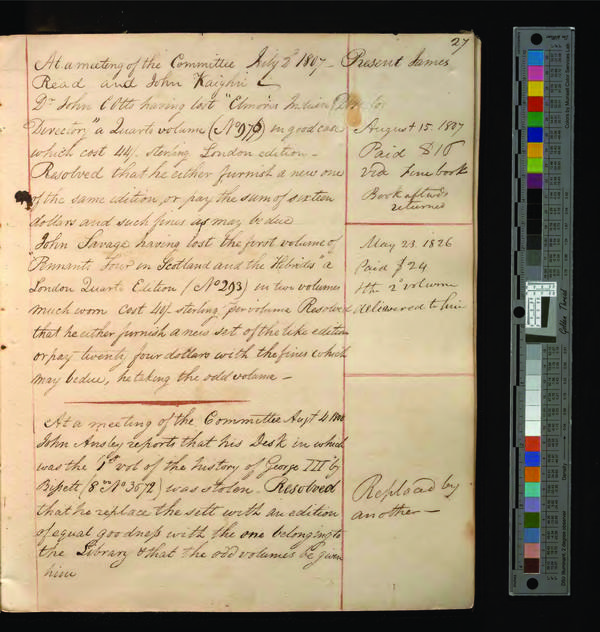 27
At a meeting of the Committee July 2d 1807 - Present James
Read and John Kaighn
Dr John Otto having lost "Elmore's Indian Director
Directory" a Quarto volume (No 976) in good case
which cost 44/. sterling London edition -
Resolved that he either furnish a new one
of the same edition, or pay the sum of sixteen
dollars and such fines as may be due
August 15. 1807
Paid $16
Vid fine book
Book afterwds
returned
John Savage having lost the first volume of
"Pennants Tour in Scotland and the Hebrides" a
London Quarto Edition (No 293) in two volumes
much worn cost 44/ sterling per volume Resolved
that he either furnish a new set of the like edition
or pay twenty four dollars with the fines which
may be due, he taking the odd volume -
May 23. 1826
Paid $24
2d volume
delivered to him
At a meeting of the Committee Augt 4
John Ansley reports that his Desk in which
was the 1st vol of the history of George III by
Bissett (8vo No 3672) was stolen. Resolved
that he replace the sett with an edition
of equal goodness with the one belonging to
the Library & that the odd volumes be given
him
Replaced by
another -